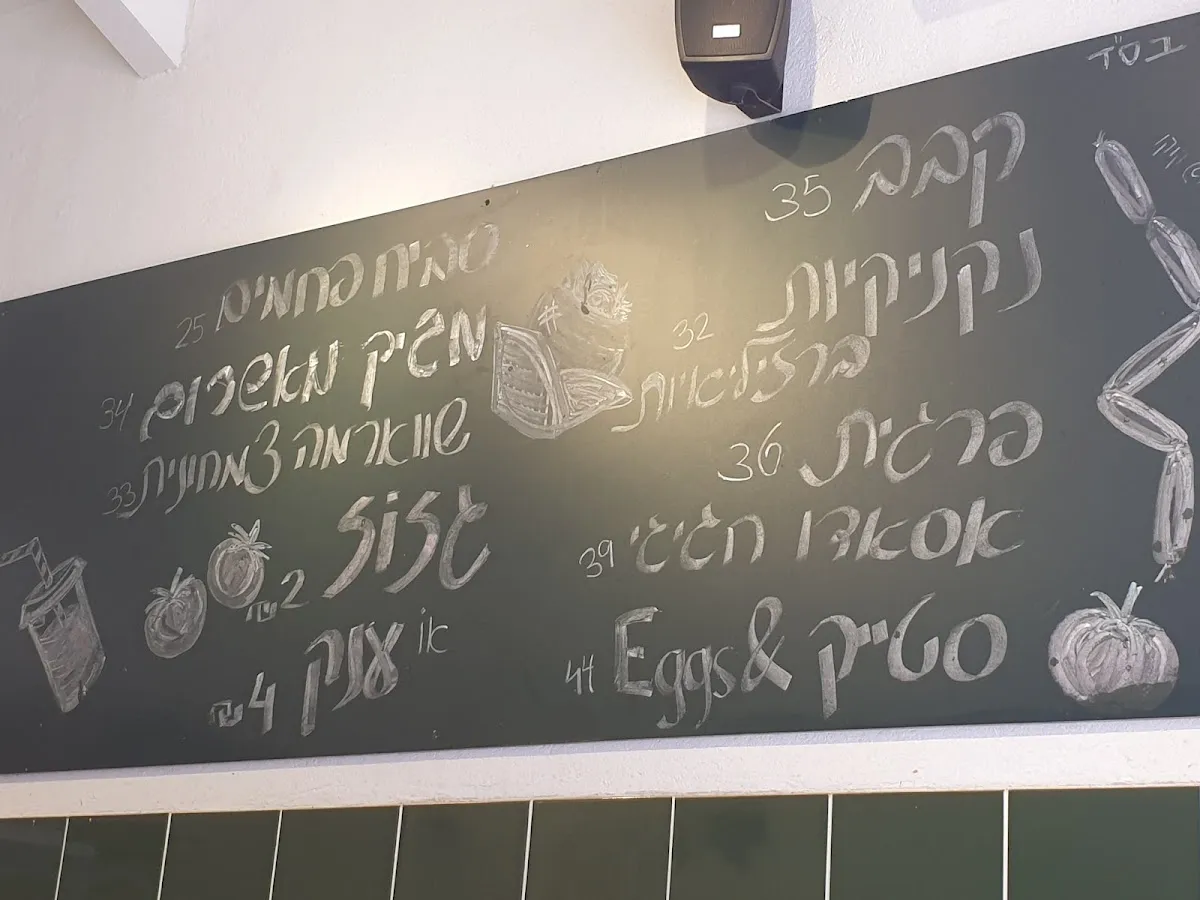 בס"ד
קבב 35
נקניקיות
ברזילאיות 32
פרגית 36
אסאדו חגיגי 39
סטייק &Eggs 44
סביח פחמים 25
מג'יק מאשרום 34
שווארמה צמחונית 33
גזוז 2 ש"ח
או ענק 4 ₪